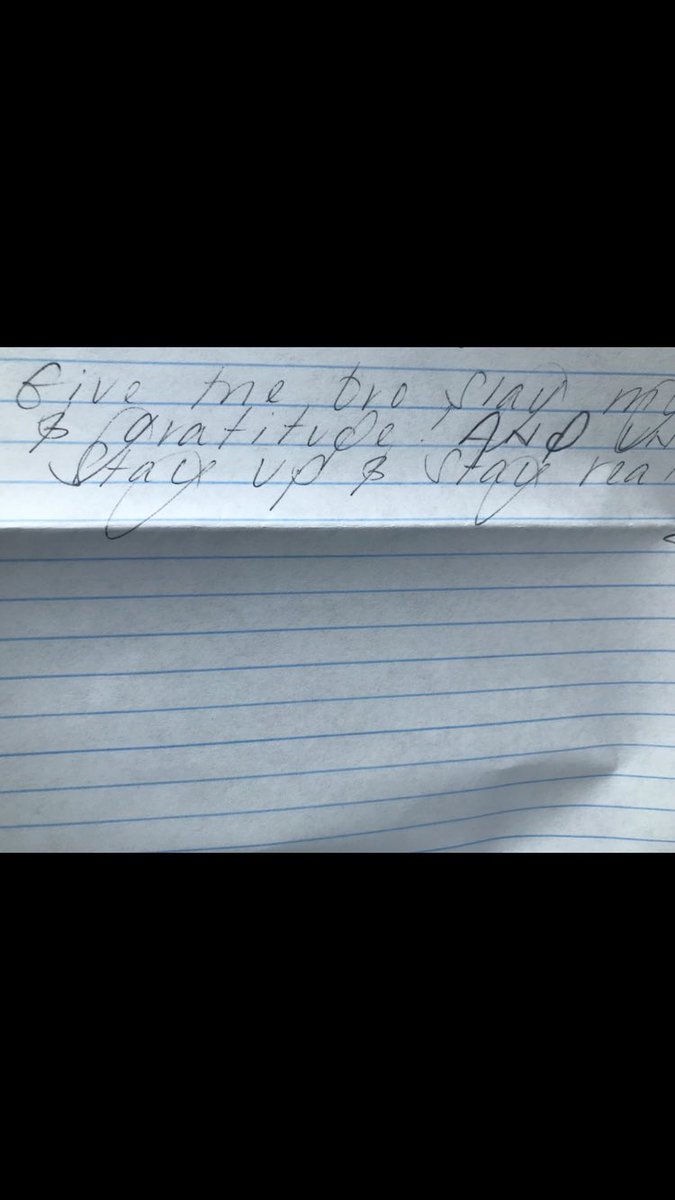 Give me bro stay
& gratitude. AND
Stay up & stay real